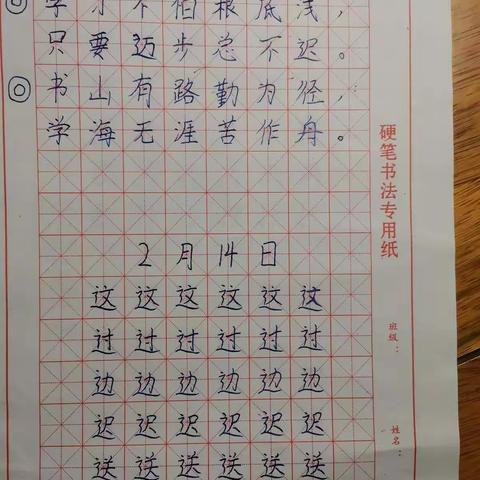 学习不怕根底浅，
只要迈步总不迟。
◎书山有路勤为径，
学海无涯苦作舟。
2月14日
这这这这这这
过过过过过过
边边边边边边
迟迟迟迟迟迟
送送送送送送
硬笔书法专用纸
班级：
姓名：